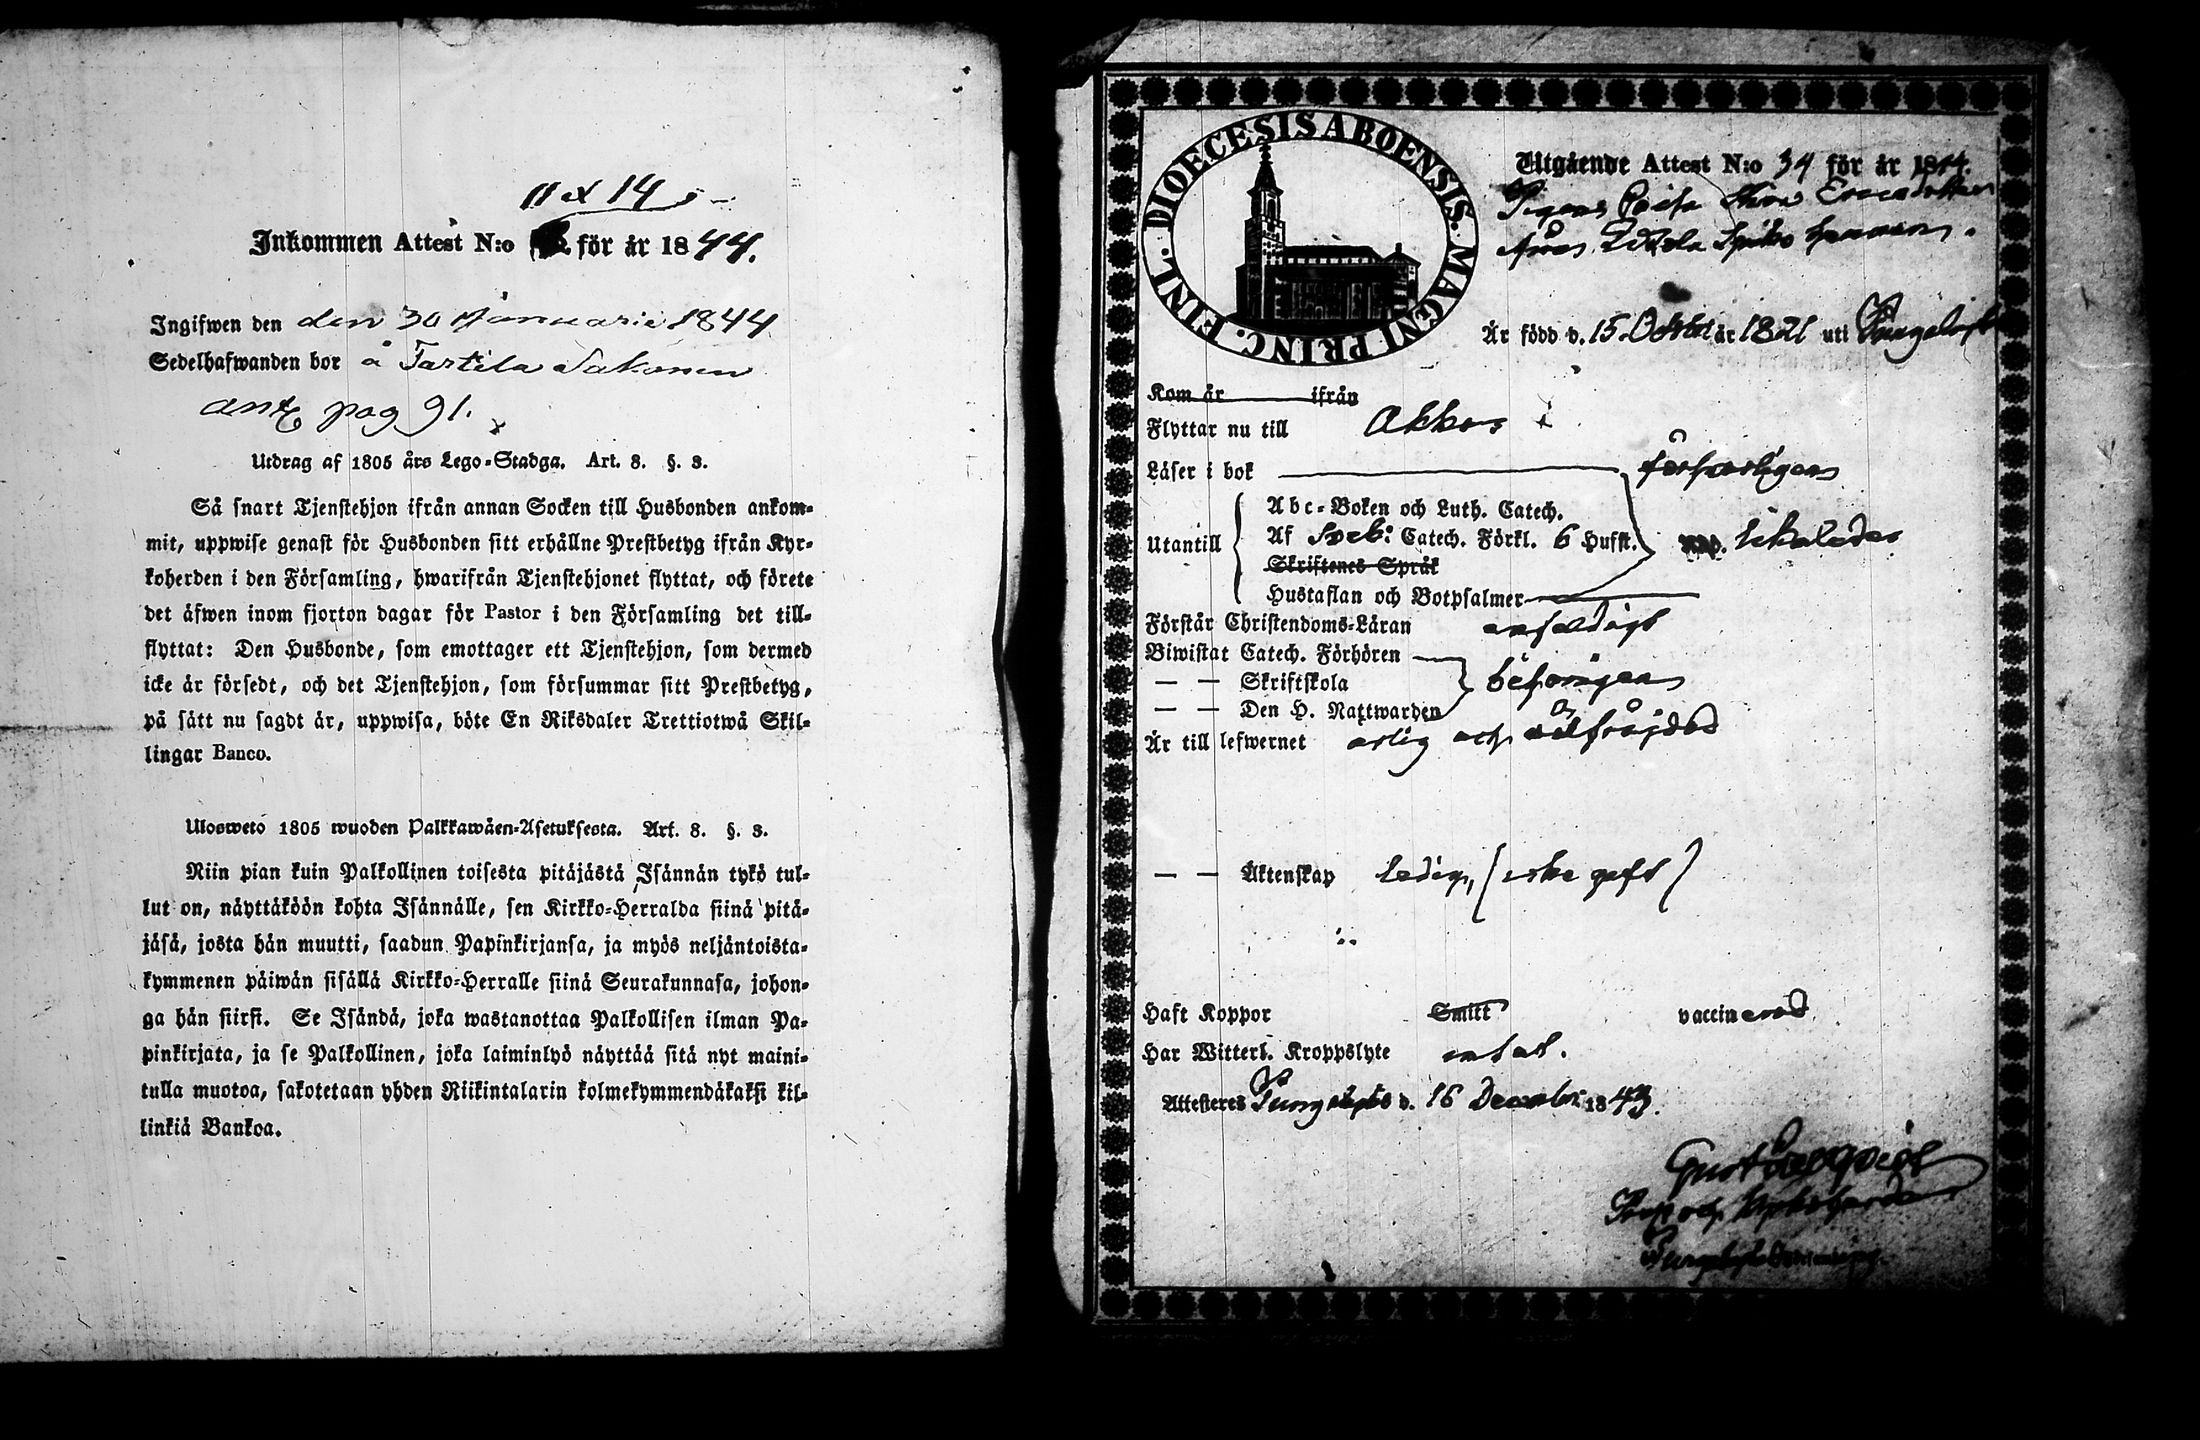 11 et 14
Inkommen Attest N:o för år 1844.
Ingifwen den den 30 Januarii 1844
Sedelhafwanden bor å Tartila Sakonen
ant pag 91.
Utdrag af 1805 års Lego-Stadga. Art. 8. §. 3.
Så snart Tjenstehjon ifrån annan Socken till Husbonden ankom-
mit, uppwise genast för Husbonden sitt erhållne Prestbetyg ifrån Kyr-
koherden i den Församling, hwarifrån Tjenstehjonet flyttat, och förete
det äfwen inom fjorton dagar för Pastor i den Församling det till-
flyttat: Den Husbonde, som emottager ett Tjenstehjon, som dermed
icke är försedt, och det Tjenstehjon, som försummar sitt Prestbetyg,
på sätt nu sagdt är, uppwisa, böte En Riksdaler Trettiotwå Skil-
lingar Banco.
Uloswetö 1805 wuoden Palkkawäen-Asetuksesta. Art. 8. §. 3.
Niin pian kuin Palkollinen toisesta pitäjästä Isännän tykö tul-
lut on, näyttäköön kohta Isännälle, sen Kirkko-Herralda siinä pitä-
jäsä, josta hän muutti, saadun Papinkirjansa, ja myös neljäntoista-
kymmenen päiwän sisällä Kirkko-Herralle siinä Seurakunnasa, johon-
ga hän siirsi. Se Isändä, joka wastanottaa Palkollisen ilman Pa-
pinkirjata, ja se Palkollinen, joka laiminlyö näyttää sitä nyt maini-
tulla muotoa, sakotetaan yhden Riikintalarin kolmekymmendäkaksi kil-
linkiä Bankoa.
DIOECESIS ABOENSIS. MAGNI PRINC. FINL.
Utgående Attest N:o 34 för år 1844.
Pigan Caisa
från
Är född d. 15 Octobr år 1821 uti Pungalaitio
Kom år ifrån
Flyttar nu till Akkas
Läser i bok försvarligen
Abc-Boken och Luth. Catech.
Utantill Af Sveb: Catech. Förkl. 6 Hufst. likaledes
Skriftenes Språk
Hustaflan och Botpsalmer
Förstår Christendoms-Läran enfaldigt
Biwistat Catech. Förhören
— — Skriftskola behörigen
— — Den H. Nattwarden
Är till lefwernet ärlig och välfrejdad
— — Äktenskap ledig, (icke gift)
Haft Koppor Smitt vaccinerad
Har Witterl. Kroppslyte intet.
Attesteres d. 16 Decembr: 1843.
Gust
Prost och Kyrkoherde